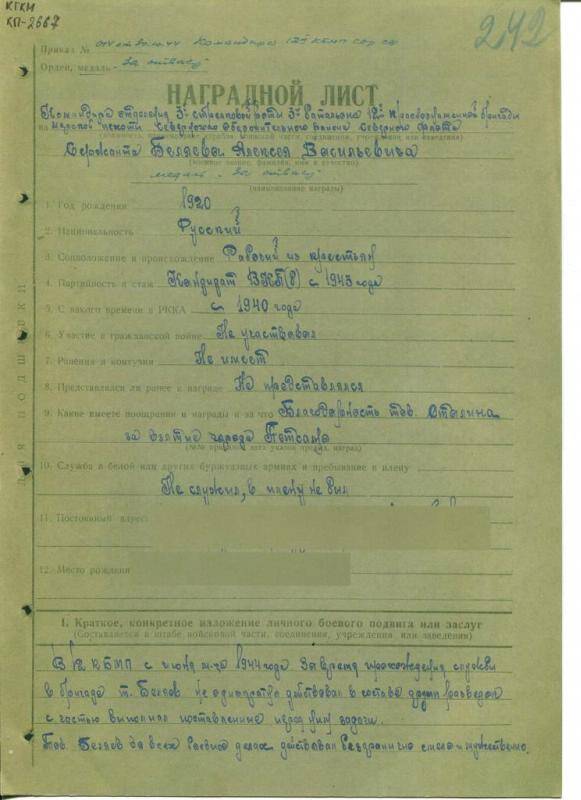 КГКМ
КП-2667
242
Приказ № от 30.10.44 Командира 12й КБМП СОР СФ
Орден, медаль "За отвагу"
НАГРАДНОЙ ЛИСТ
Командира отделения 3й стрелковой роты 3го батальона 12й Краснознаменной бригады
на морской пехоты Северного Оборонительного района Северного флота
Сержанта Беляева Алексея Васильевича
(воинское звание, фамилия, имя и отчество)
медаль "За отвагу"
(наименование награды)
1. Год рождения 1920
2. Национальность Русский
3. Соцположение и происхождение Рабочий из крестьян
4. Партийность и стаж Кандидат ВКП(б) с 1943 года
5. С какого времени в РККА с 1940 года
6. Участие в гражданской войне Не участвовал
7. Ранения и контузии Не имеет
8. Представлялся ли ранее к награде Не представлялся
9. Какие имеет поощрения и награды и за что Благодарность тов. Сталина
за взятие города Петсамо
(№№ приказов, дата указов през., наград)
10. Служба в белой или других буржуазных армиях и пребывание в плену
Не служил, в плену не был
11. Постоянный адрес:
12. Место рождения
ДЛЯ ПОДШИВКИ
I. Краткое, конкретное изложение личного боевого подвига или заслуг
(Составляется в штабе войсковой части, соединения, учреждения или заведения)
В 12 КБМП с июня м-ца 1944 года. За время прохождения службы
в бригаде т. Беляев не однократно действовал в составе групп разведки
с честью выполнял поставленные перед ним задачи.
Тов. Беляев во всех боевых делах действовал бесстрашно смело и мужественно.